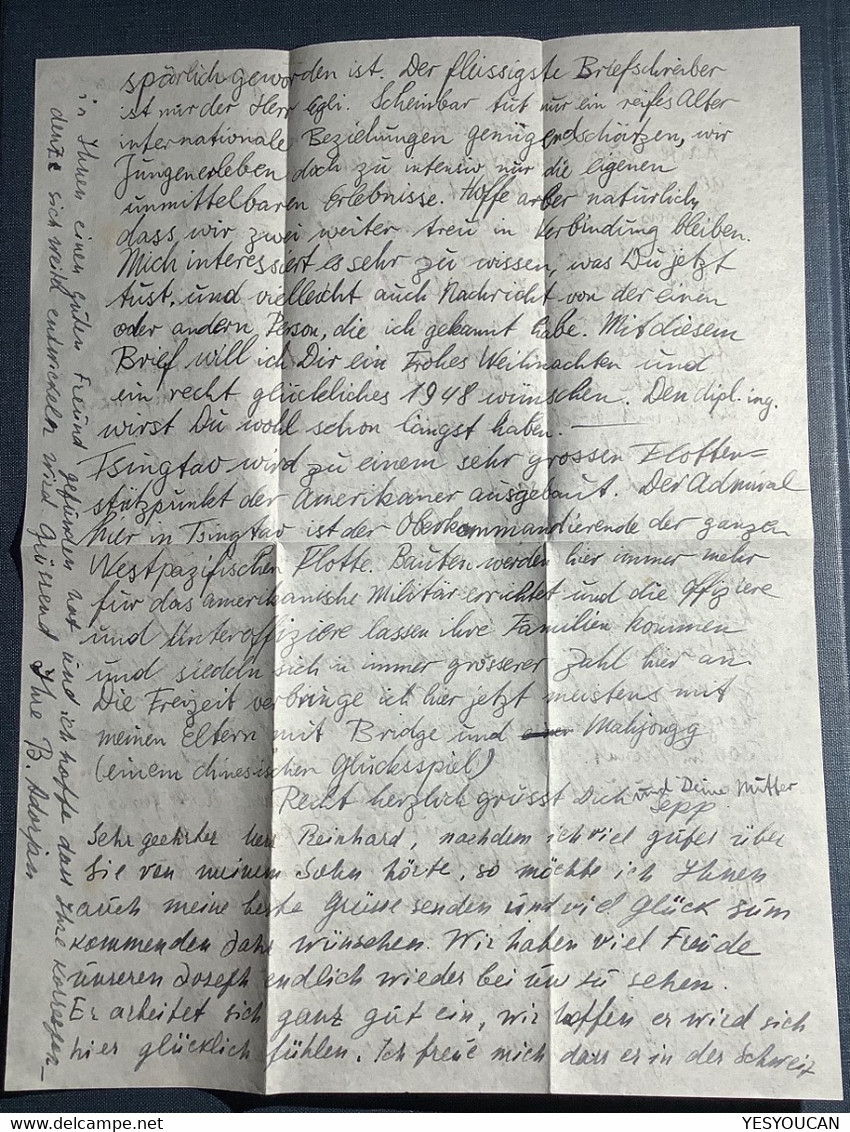 spärlich geworden ist. Der flüssigste Briefschreiber
ist nur der Herr Egli. Scheinbar tut nur ein reifes Alter
internationale Beziehungen genügend schätzen, wir
Jungen erleben doch zu intensiv nur die eigenen
unmittelbaren Erlebnisse. Hoffe aber natürlich,
dass wir zwei weiter treu in Verbindung bleiben.
Mich interessiert es sehr zu wissen, was Du jetzt
tust, und vielleicht auch Nachricht von der einen
oder andern Person, die ich gekannt habe. Mit diesem
Brief will ich Dir ein Frohes Weihnachten und
ein recht glückliches 1948 wünschen. Den dipl. ing.
wirst Du wohl schon längst haben. —
Tsingtao wird zu einem sehr grossen Flotten=
stützpunkt der Amerikaner ausgebaut. Der Admiral
hier in Tsingtao ist der Oberkommandierende der ganzen
Westpazifischen Flotte. Bauten werden hier immer mehr
für das amerikanische Militär errichtet und die Offiziere
und Unteroffiziere lassen ihre Familien kommen
und siedeln sich in immer grösserer Zahl hier an.
Die Freizeit verbringe ich hier jetzt meistens mit
meinen Eltern mit Bridge und Mahjongg
(einem chinesischen Glücksspiel)
Recht herzlich grüsst Dich und Deine Mutter
Sepp.
Sehr geehrter Herr Reinhard, nachdem ich viel gutes über
Sie von meinem Sohn hörte, so möchte ich Ihnen
auch meine beste Grüsse senden und viel Glück zum
kommenden Jahr wünschen. Wir haben viel Freude
unseren Josef endlich wieder bei uns zu sehen.
Er arbeitet sich ganz gut ein, wir hoffen er wird sich
hier glücklich fühlen. Ich freue mich dass er in der Schweiz
in Ihnen einen guten Freund gefunden hat und ich hoffe dass Ihre Korrespon-
denz sich weiter entwickeln wird Grüssend Ihre B. Adorjan
YESYOUCAN